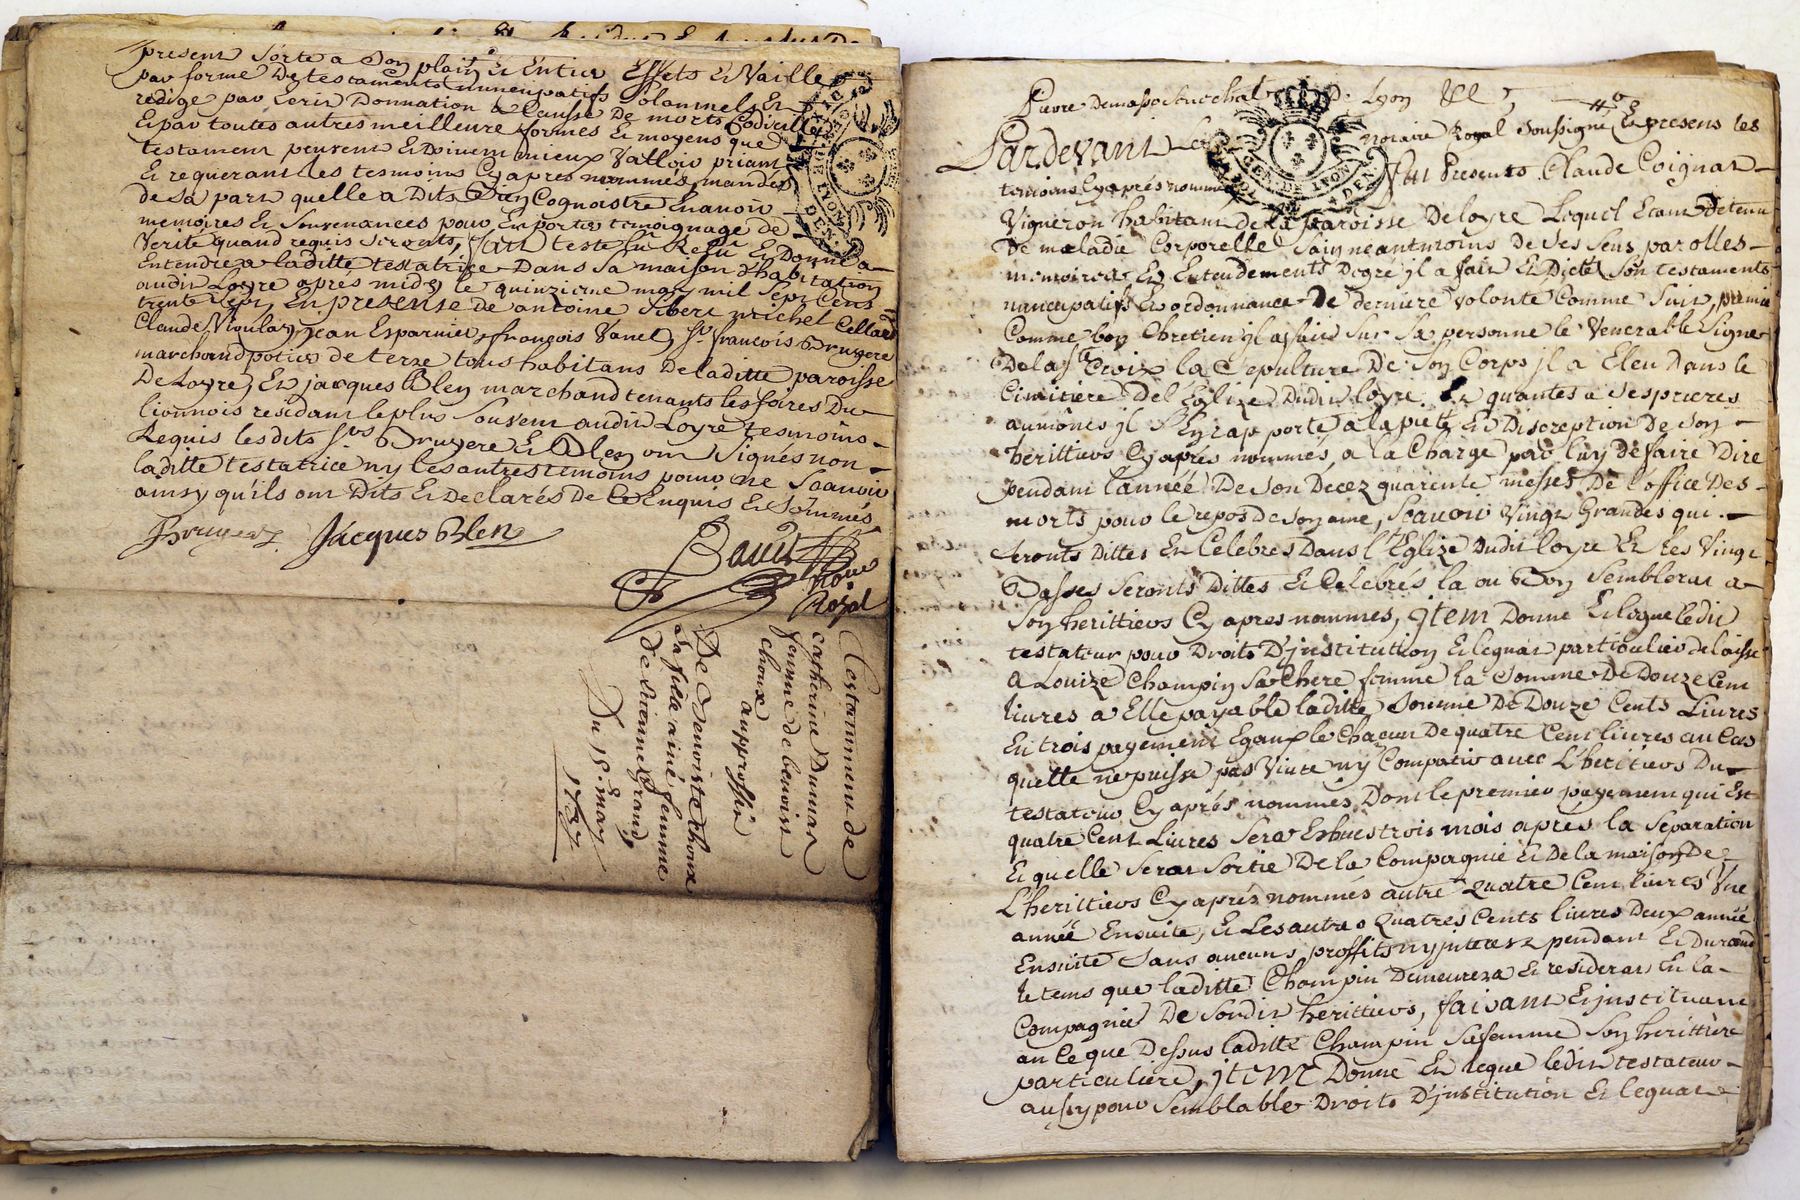 present sorte a son plain Et Entier Effets Et Vaille
par forme De testaments nuncupatifs solannels Et
redigé par Ecrit Donnation a Cause De morts Codicille
Et par toutes autres meilleure formes Et moyens que
testament peuvent Et Doivent mieux Valloir priant
Et requerant les tesmoins Cy apres nommés mandés
de sa part quelle a Dits bien Cognoistre En avoir
memoires Et Souvenances pour En porter temoignage de
Verité quand requis seronts, fait testé lu Relu Et Donné a
Entendre a laditte testatrice Dans sa maison d'habitation
audit Loyre apres midy le quinzieme may mil sept Cens
trente sept En presense de antoine Sibert michel Cellard
Claude Violay, jean Esparnier, françois Vanel, Sr françois Bruyere
marchand potier de terre tous habitans De laditte paroisse
De Loyre, Et jacques Blen marchand tenants les foires Du
lionnois residant le plus souvent audit Loyre tesmoins
Requis lesdits Srs Bruyere Et Blen ont Signés non
laditte testatrice ny les autres temoins pour ne Scavoir
ainsy qu'ils ont Dits Et Declarés De Ce Enquis Et Sommés
Bruyere Jacques Blen
Nore
Royal
Testament de
catherine Dumas
femme de benoist
choux
au proffit
De benoiste choux
sa fille ainé femme
de grand
Du 15. may
1737
De Lyon
Pardevant Le notaire Royal Soussigné Et presens les
temoins Cy aprés nommés fut Presents Claude Coignat
Vigneron habitant De la paroisse De loyre Lequel Etant Detenu
De maladie Corporelle Sain neantmoins de Ses Sens parolles
memoires Et Entendements Degré jl a fait Et Dicté Son testaments
nuncupatifs Et ordonnance De derniere volonté Comme Suit, premier
Comme bon Chretien jl a fait Sur Sa personne le Venerable Signe
De la Ste Croix la Sepulture De Son Corps jl a Eleu Dans le
Cimitiere De l'Eglize Dudit loyre Et quantes a Ses prieres
aumônes jl S'En rapporte a la pieté Et Discreption De Son
herittiers Cy aprés nommés, a la Charge par luy de faire Dire
pendant l'année De Son Decez quarente messes De l'office Des
morts pour le repos de Son ame, Scavoir Vingt Grandes qui
Seronts Dittes Et Celebrés Dans l'Eglize Dudit loyre Et les Vingt
Basses Seronts Dittes Et Celebrés la ou Bon Semblerat a
Son herittiers Cy apres nommés, jtem Donne Et legue ledit
testateur pour Droits D'jnstitution Et leguat particulier delaisse
a Louize Champin Sa Chere femme la Somme De Douze Cent
livres a Elle payable laditte Somme De Douze Cents Livres
En trois payement Egaux le Chacun De quatre Cent livres au Cas
quelle ne puisse pas Vivre ny Compatir avec L'heritiers Du
testateur Cy aprés nommés Dont le premier payement qui Est
quatre Cent Livres Sera Exhus trois mois apres la Separation
Et quelle Serat Sortie De la Compagnie Et De la maison De
L'herittiers Cy aprés nommés autre Quatre Cent livres Une
année Ensuite, Et Les autre Quatres Cents livres Deux année
Ensuite Sans aucuns proffits ny jnterest pendant Et Durand
le tems que laditte Champin Demeurera Et residerat En la
Compagnie De Sondit herittiers, faisant Et jnstituant
au Ce que Dessus laditte Champin Sa femme Son herittiere
particuliere, jtem Donne Et legue ledit testateur
aussy pour Semblable Droits D'jnstitution Et leguat